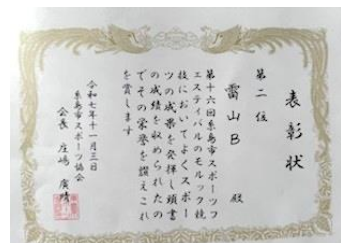 表彰状
第二位
雷山B 殿
第十六回糸島市スポーツフ
ェスティバルのモルック競
技においてよくスポー
ツの成果を発揮し頭書
の成績を収められたの
でその栄誉を讃えこれ
を賞します
令和七年十一月三日
糸島市スポーツ協会
会長 庄嶋 廣晴